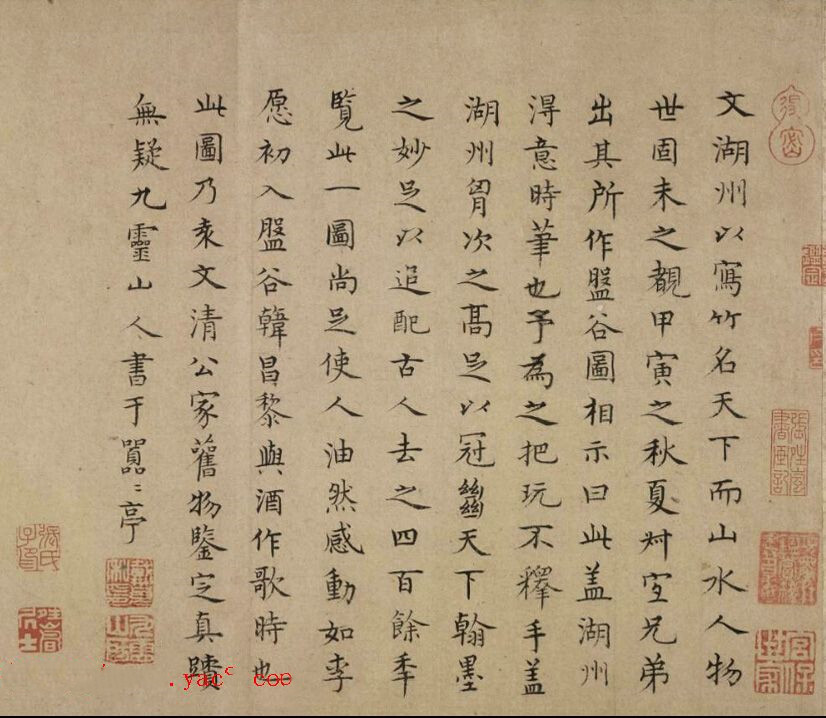 文湖州以寫竹名天下而山水人物
世固未之覩甲寅之秋夏宜兄弟
出其所作盤谷圖相示曰此盖湖州
得意時筆也予為之把玩不釋手盖
湖州胷次之髙足以冠絕天下翰墨
之妙足以追配古人去之四百餘年
覽此一圖尚足使人油然感動如李
愿初入盤谷韓昌黎與酒作歌時也
此圖乃袁文清公家舊物鑒定真蹟
無疑九靈山人書于囂〻亭